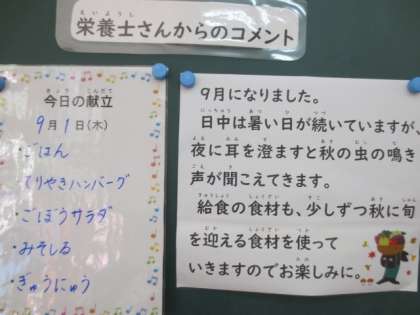 栄養士さんからのコメント
今日の献立
9月1日(木)
・ごはん
・てりやきハンバーグ
・ごぼうサラダ
・みそしる
・ぎゅうにゅう
9月になりました。
日中は暑い日が続いていますが、
夜に耳を澄ますと秋の虫の鳴き
声が聞こえてきます。
給食の食材も、少しずつ秋に旬
を迎える食材を使って
いきますのでお楽しみに。